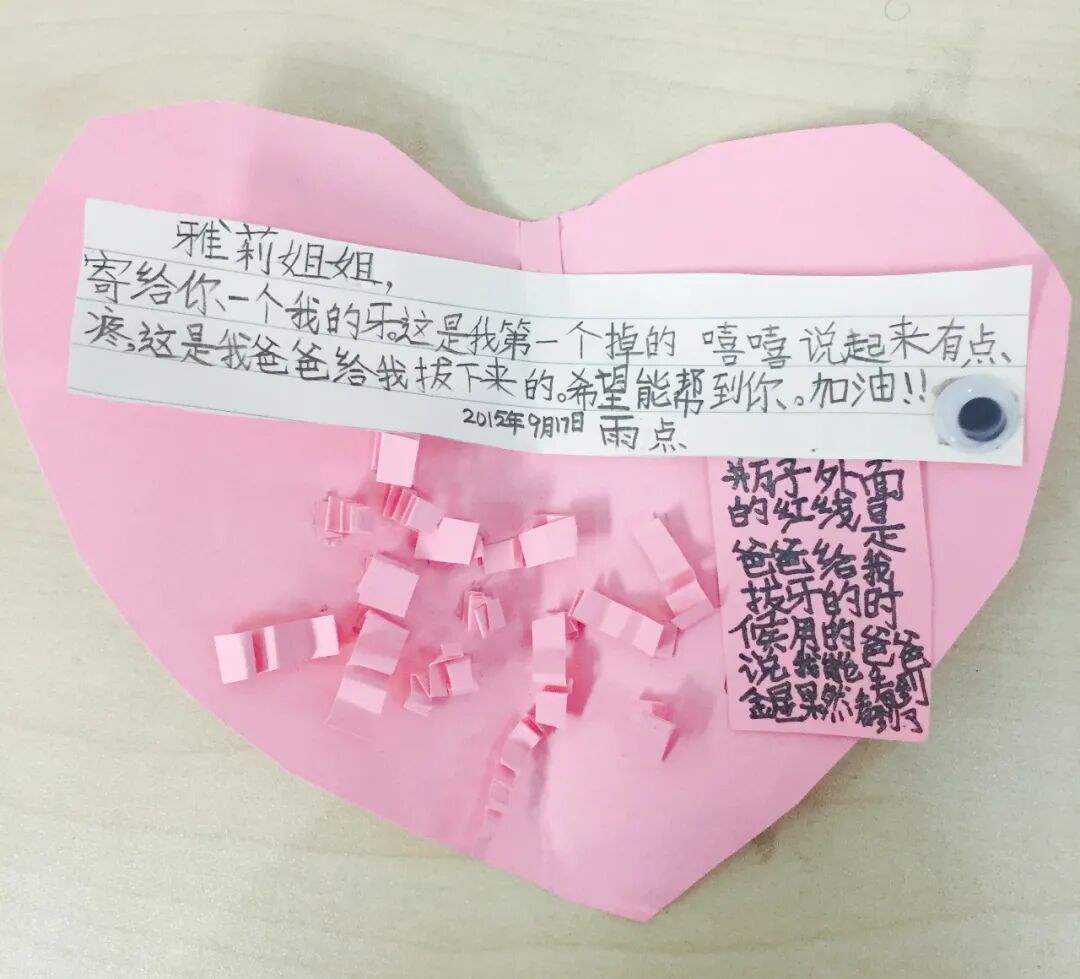 雅莉姐姐,
寄给你、一个我的牙。这是我第一个掉的 嘻嘻 说起来有点、
疼,这是我爸爸给我拔下来的。希望能帮到你、。加油!!
2015年9月17日 雨点
瓶子外面
的红线是
爸爸给我
拔牙的时
候用的爸爸
说我能看到
金星果然看到了